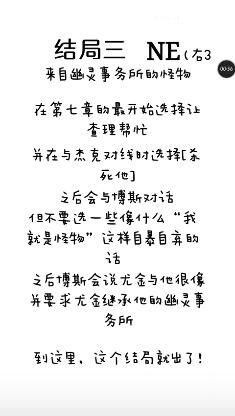 结局三 NE(右3
来自幽灵事务所的怪物
在第七章的最开始选择让
查理帮忙
并在与杰克对线时选择[杀
死他]
之后会与博斯对话
但不要选一些像什么“我
就是怪物”这样自暴自弃的
话
之后博斯会说尤金与他很像
并要求尤金继承他的幽灵事
务所
到这里，这个结局就出了!
00:56